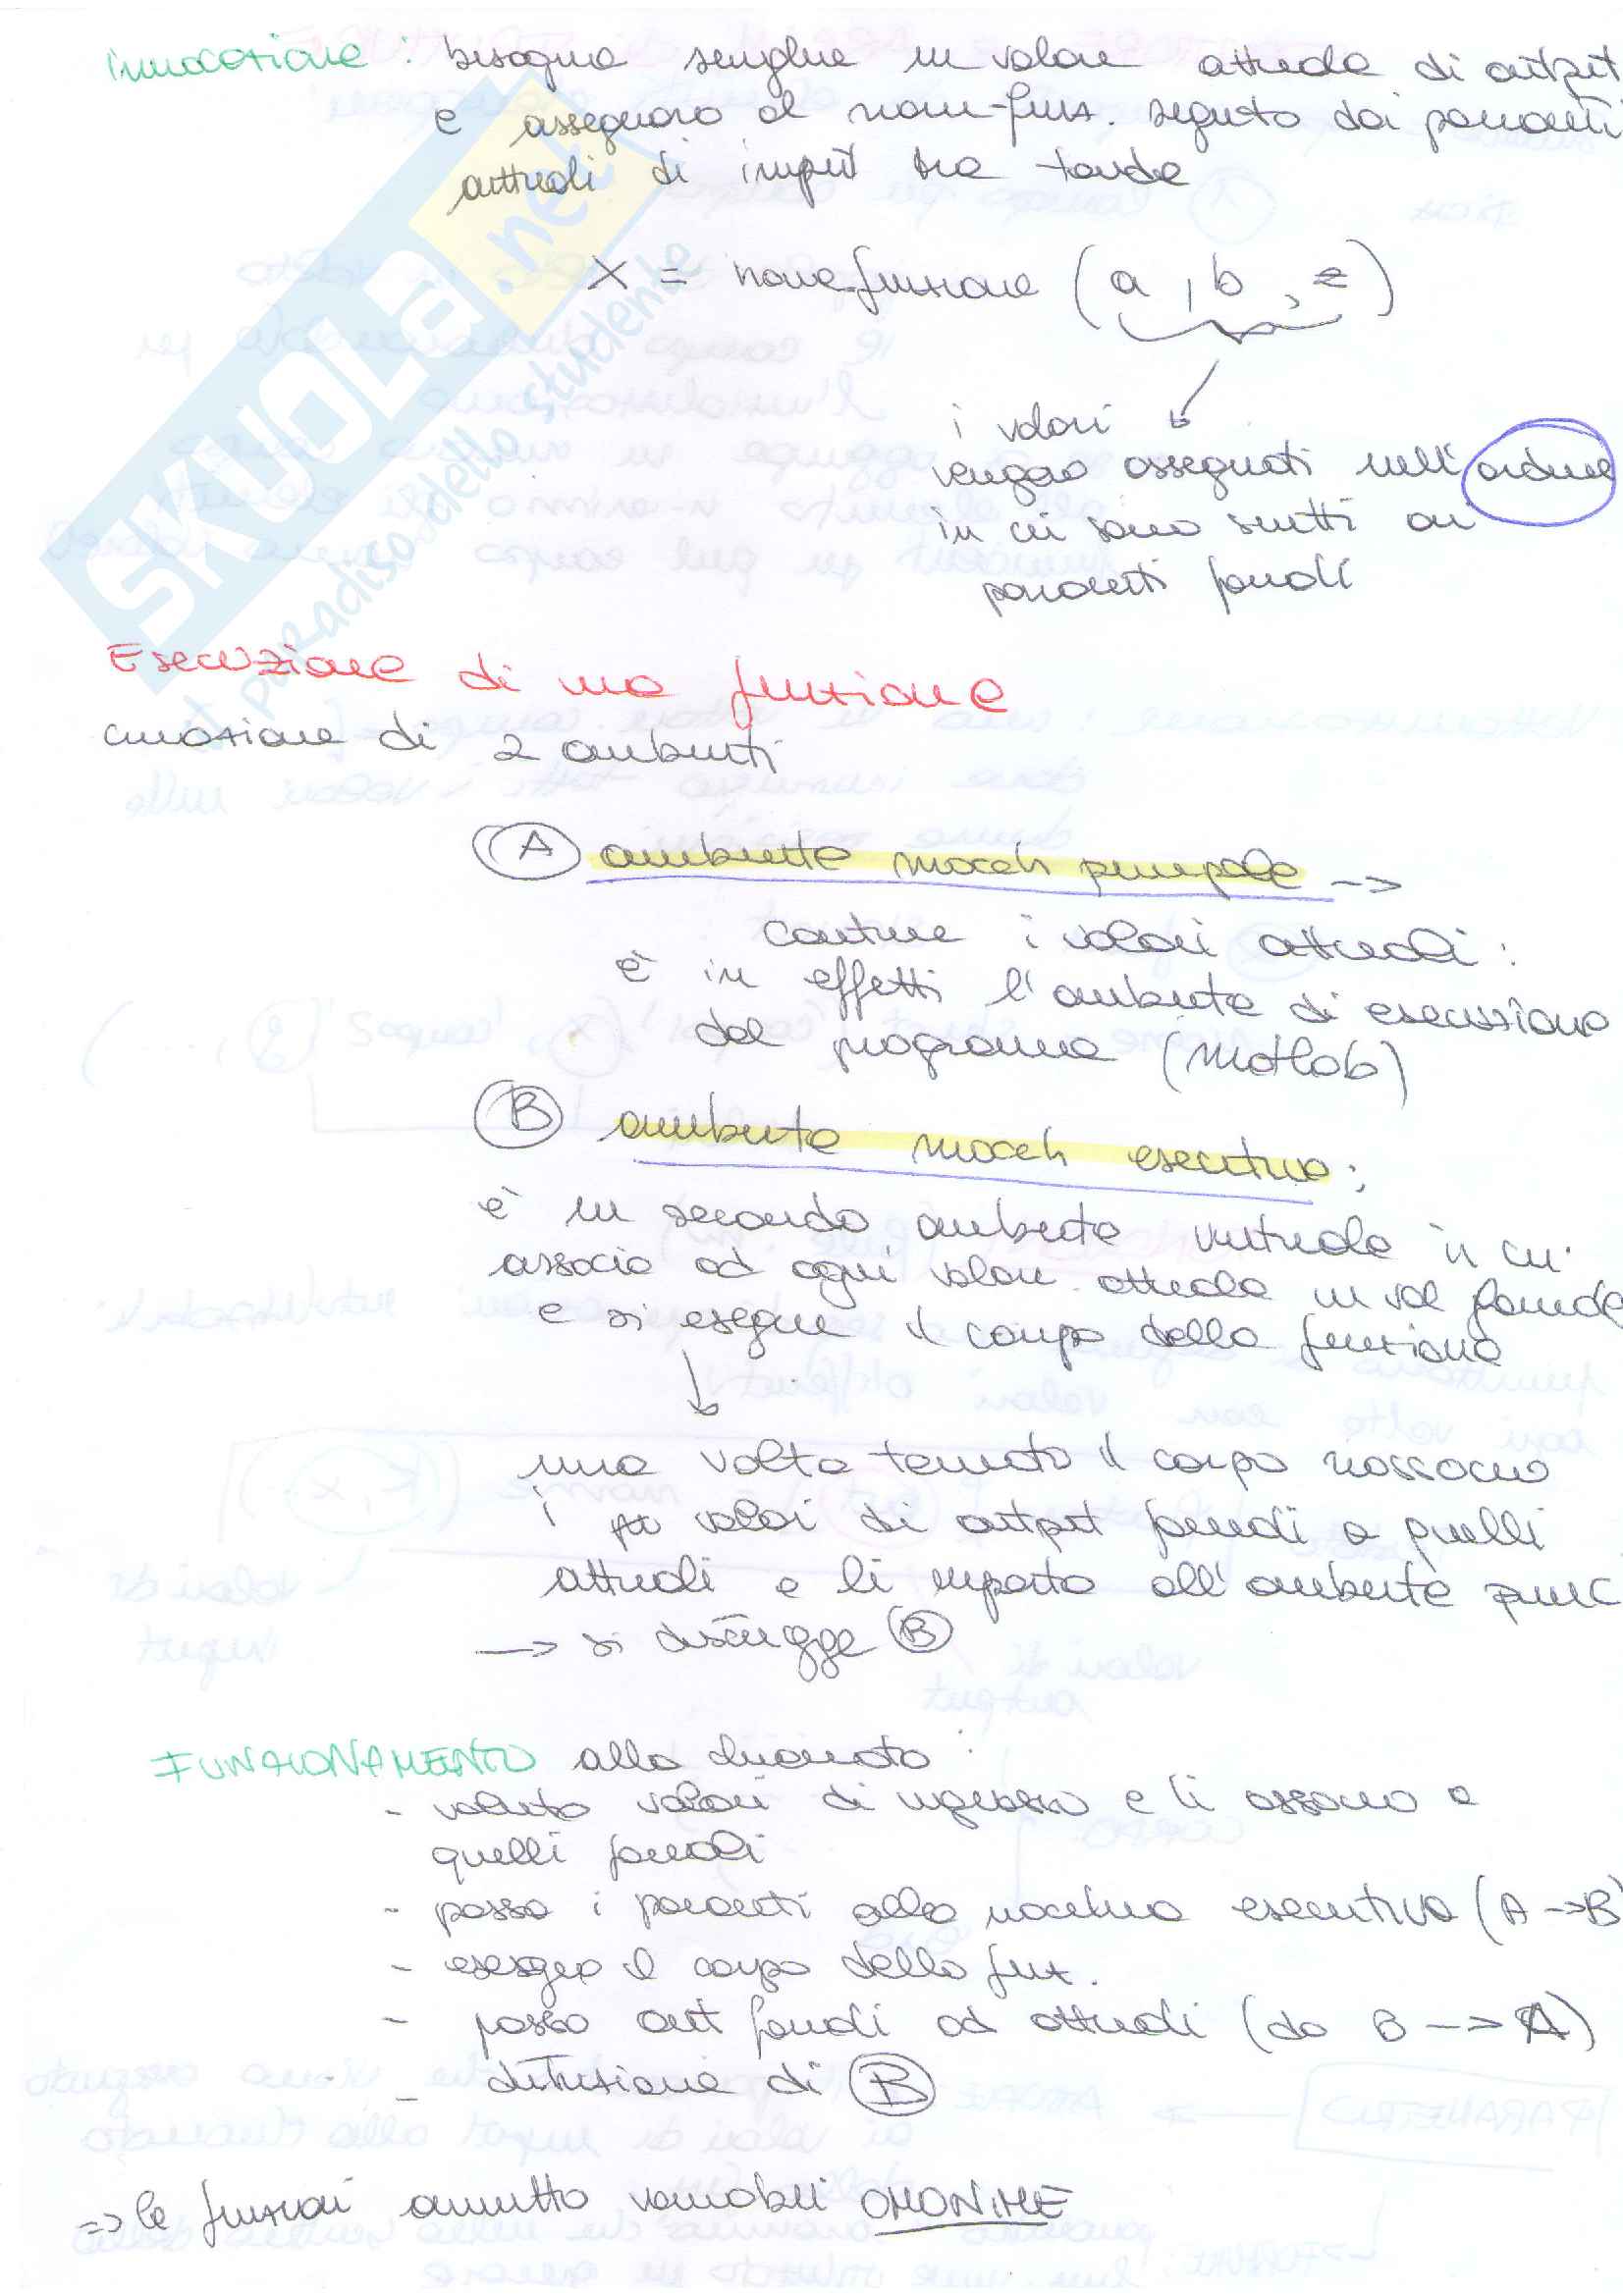 invocazione : bisogna scegliere un valore attuale di output
e assegnarlo al nome-funz. seguito dai parametri
attuali di input tra tonde
X = nome funzione (a, b, z)
i valori
vengono assegnati nell'ordine
in cui sono scritti ai
parametri formali
Esecuzione di una funzione
creazione di 2 ambienti
A ambiente macch principale -->
contiene i valori attuali :
è in effetti l'ambiente di esecuzione
del programma (Matlab)
B ambiente macch esecutiva :
è un secondo ambiente virtuale in cui
associo ad ogni valore attuale un val formale
e si esegue il corpo della funzione
una volta terminato il corpo riassocio
i valori di output formali a quelli
attuali e li riporto all'ambiente princ
--> si distrugge B
FUNZIONAMENTO alla chiamata :
- valuto valori di ingresso e li associo a
quelli formali
- passo i parametri alla macchina esecutiva (A -->B)
- eseguo il corpo della funz.
- passo out formali ad attuali (da B --> A)
- distruzione di B
=> le funzioni ammetto variabili OMONIME
SKUOLA.net
il paradiso dello studente